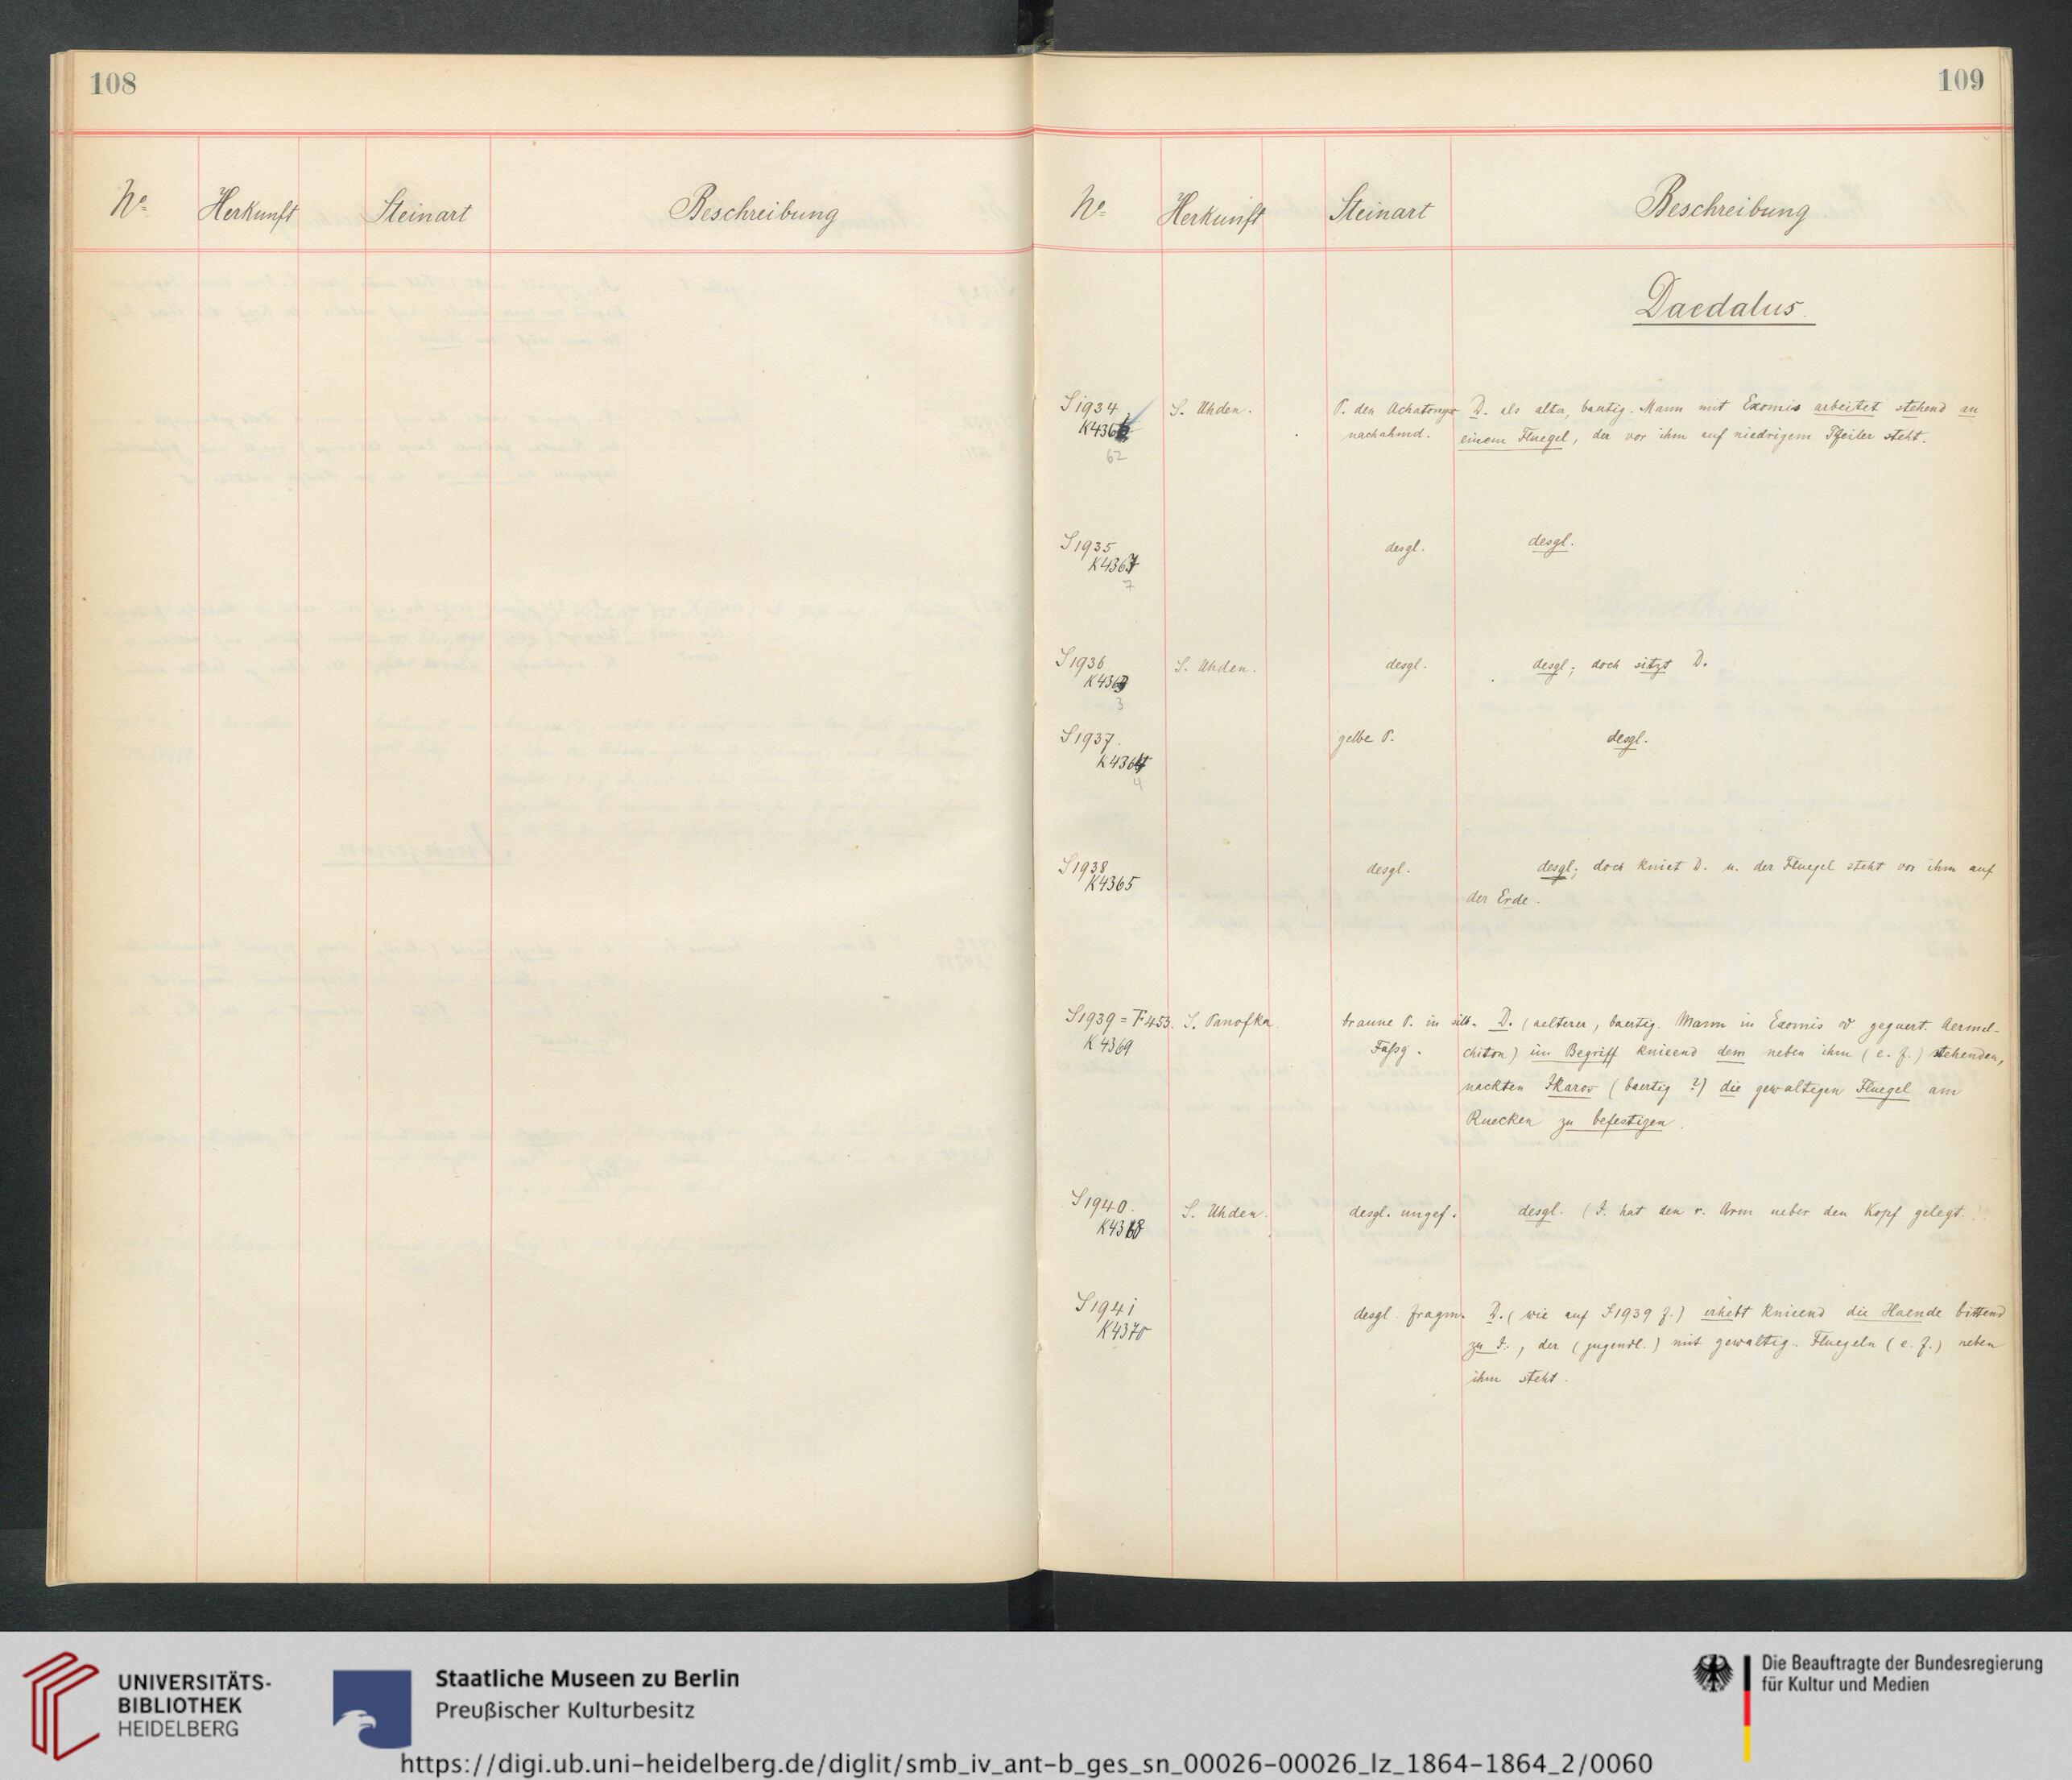 108
No Herkunft Steinart Beschreibung
109
No Herkunft Steinart Beschreibung
Daedalus.
S1934 S. Uhden. P. den Achatonyx D. als alter, baertig. Mann mit Exomis arbeitet stehend an
K436 nachahmd. einem Fluegel, der vor ihm auf niedrigem Pfeiler steht.
62
S1935 desgl. desgl.
K4367
7
S1936 S. Uhden. desgl. desgl; doch sitzt D.
K4363
3
S1937. gelbe P. desgl.
K4364
4
S1938 desgl. desgl; doch kniet D. u. der Fluegel steht vor ihm auf
K4365 der Erde.
S1939 = F453. S. Panofka. braune P. in silb. D. (aelterer, baertig. Mann in Exomis od. geguert. Aermel-
K4369 Faßg. chiton) im Begriff knieend dem neben ihm (e. f.) stehenden,
nackten Ikaros (baertig ?) die gewaltigen Fluegel am
Ruecken zu befestigen.
S1940. S. Uhden. desgl. ungef. desgl. (I. hat den r. Arm ueber den Kopf gelegt.
K4368
S1941 desgl. fragm. D. (wie auf S1939 f.) erhebt knieend die Haende bittend
K4370 zu I., der (jugendl.) mit gewaltig. Fluegeln (e. f.) neben
ihm steht.
UNIVERSITÄTS-
BIBLIOTHEK
HEIDELBERG
Staatliche Museen zu Berlin
Preußischer Kulturbesitz
Die Beauftragte der Bundesregierung
für Kultur und Medien
https://digi.ub.uni-heidelberg.de/diglit/smb_iv_ant-b_ges_sn_00026-00026_lz_1864-1864_2/0060